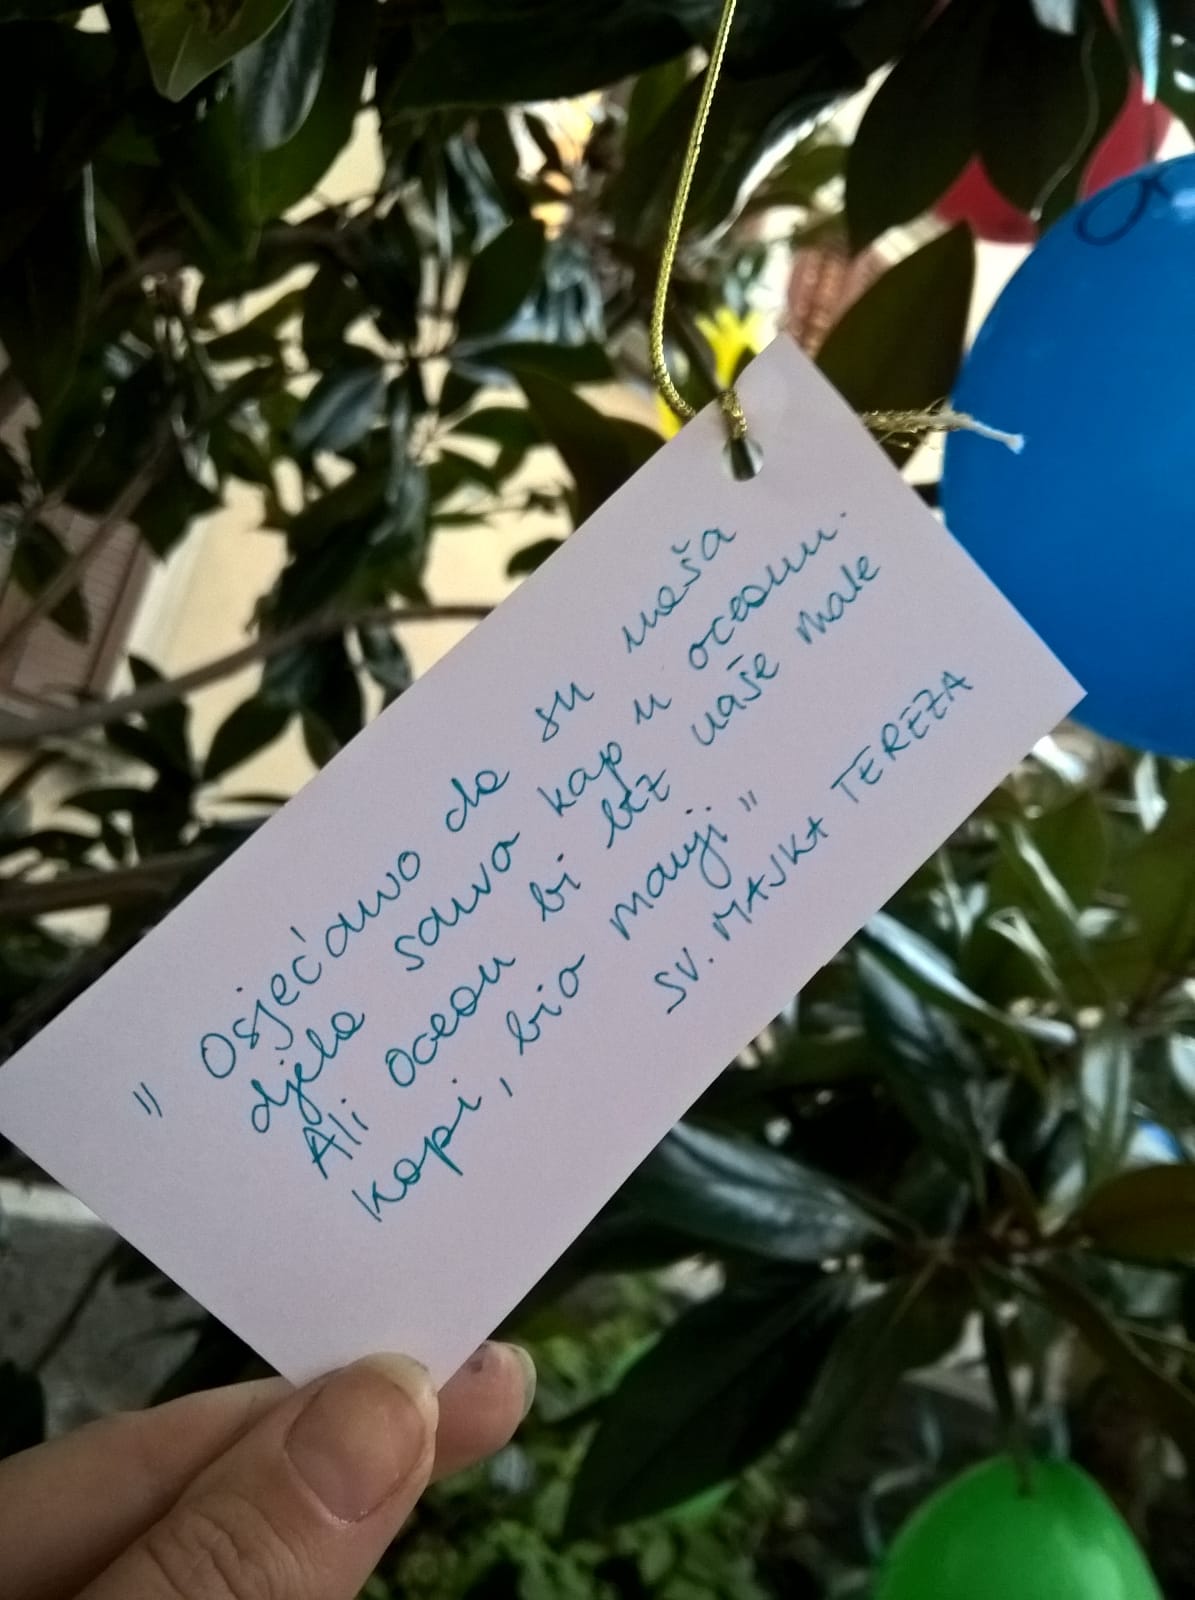 " Osjećamo da su naša
djela samo kap u oceanu.
Ali ocean bi bez naše male
kapi, bio manji "
SV. MAJKA TEREZA